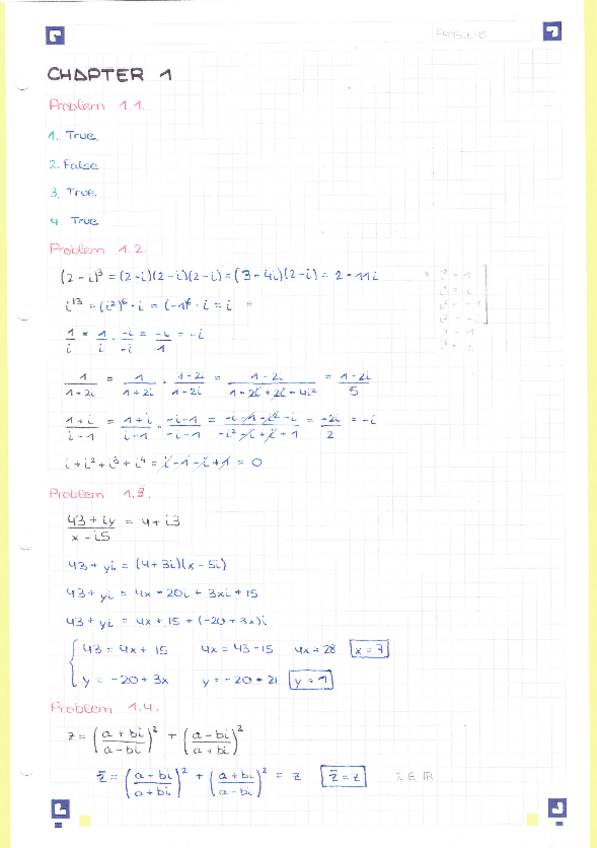 PROBLEMS
CHAPTER 1
Problem 1.1.
1. True.
2. False
3. True.
4. True
Problem 1.2.
(2-i)³ = (2-i)(2-i)(2-i) = (3-4i)(2-i) = 2-11i
i¹³ = (i²)⁶·i = (-1)⁶·i = i
1/i = 1/i · -i/-i = -i/1 = -i
1/1+2i = 1/1+2i · 1-2i/1-2i = 1-2i/1-2i+2i-4i² = 1-2i/5
1+i/i-1 = 1+i/i-1 · -i-1/-i-1 = -i-1-i²-i/-i²-i+i+1 = -2i/2 = -i
i+i²+i³+i⁴ = i-1-i+1 = 0
Problem 1.3.
43+iy/x-i5 = 4+i3
43+yi = (4+3i)(x-5i)
43+yi = 4x-20i+3xi+15
43+yi = 4x+15+(-20+3x)i
43 = 4x+15 4x = 43-15 4x = 28 x = 7
y = -20+3x y = -20+21 y = 1
Problem 1.4.
z = (a+bi/a-bi)² + (a-bi/a+bi)²
z̄ = (a-bi/a+bi)² + (a+bi/a-bi)² = z z̄ = z z ∈ ℝ